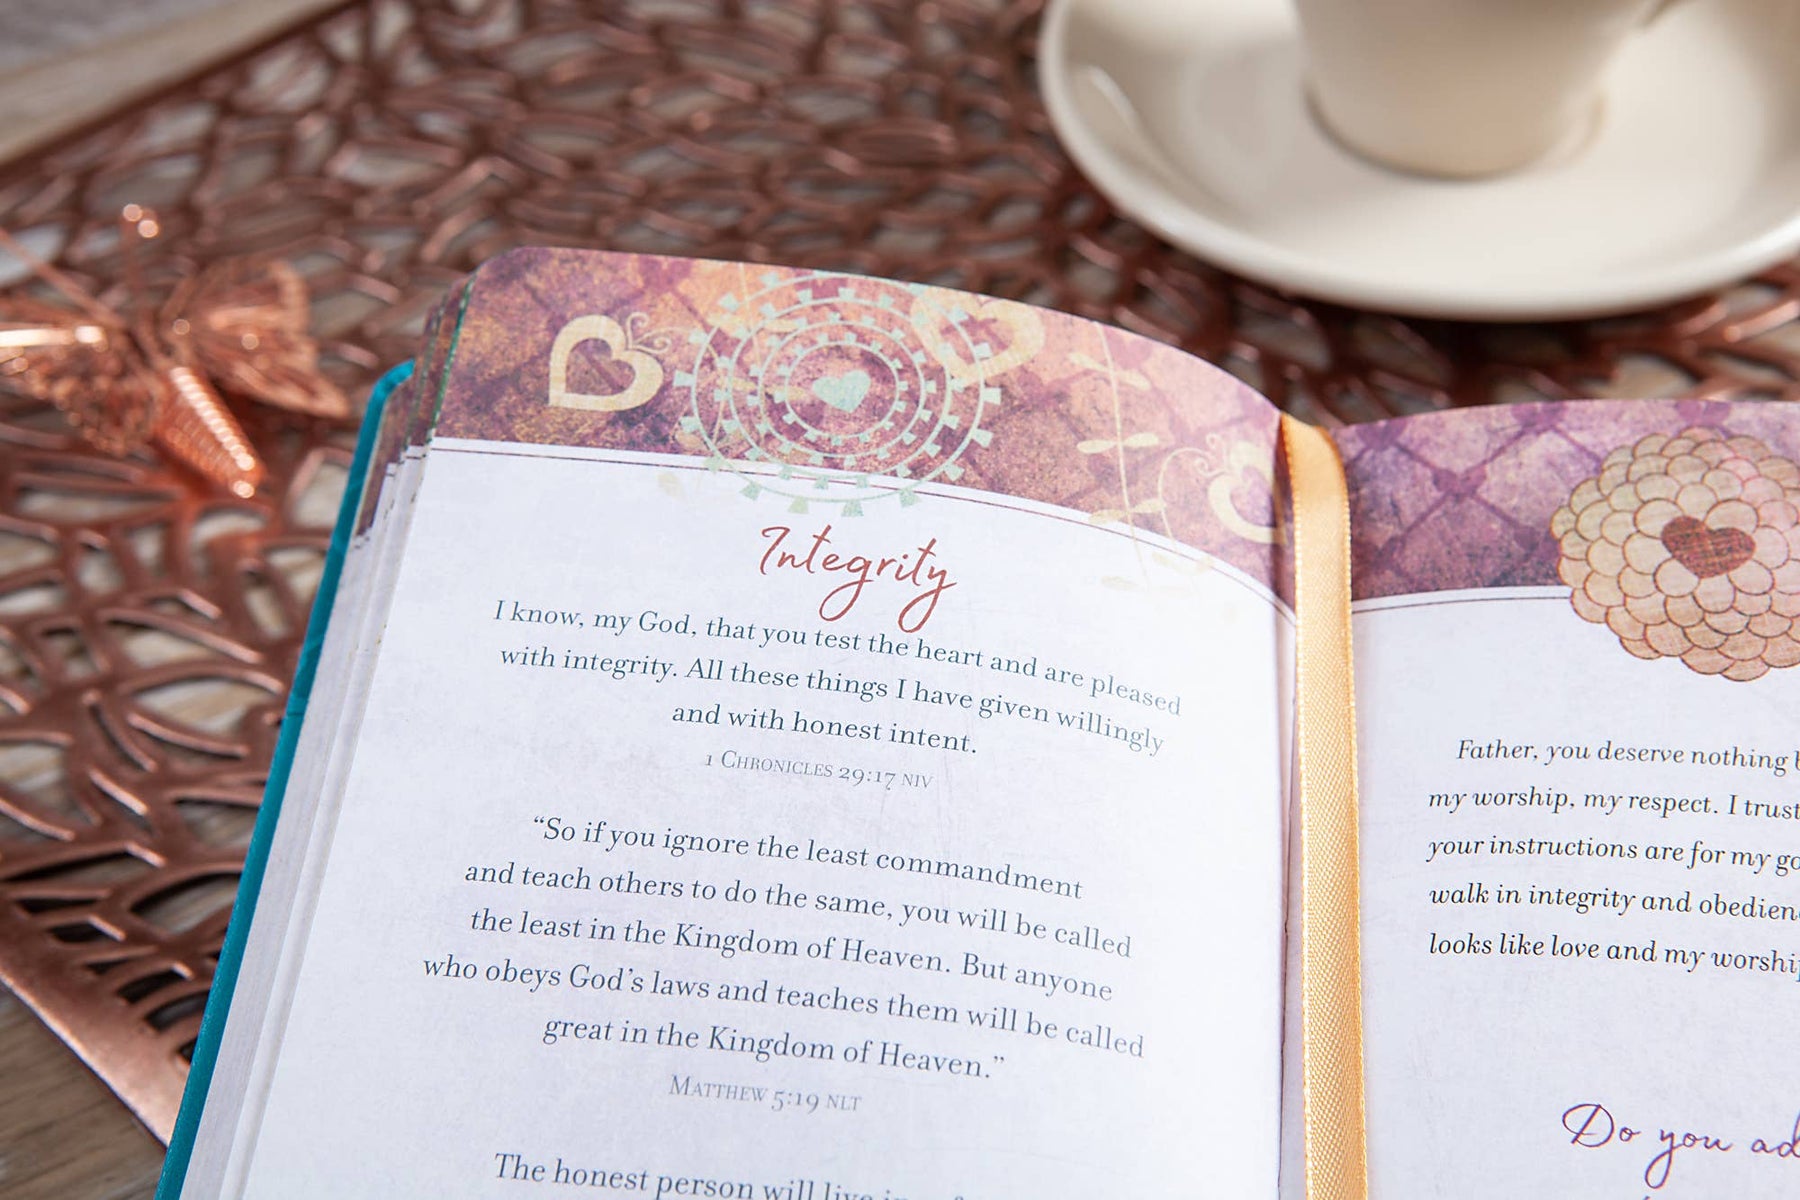 Integrity
I know, my God, that you test the heart and are pleased
with integrity. All these things I have given willingly
and with honest intent.
1 Chronicles 29:17 NIV
“So if you ignore the least commandment
and teach others to do the same, you will be called
the least in the Kingdom of Heaven. But anyone
who obeys God’s laws and teaches them will be called
great in the Kingdom of Heaven.”
Matthew 5:19 NLT
The honest person will live in
Father, you deserve nothing
my worship, my respect. I trust
your instructions are for my
walk in integrity and
looks like love and my
Do you